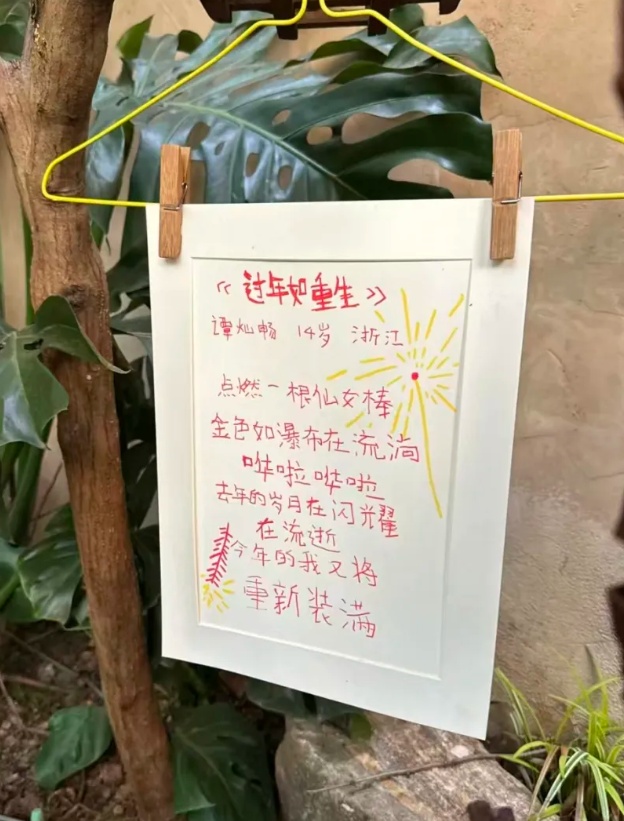 《过年如重生》
谭灿畅 14岁 浙江
点燃一根仙女棒
金色如瀑布在流淌
哗啦哗啦
去年的岁月在闪耀
在流逝
今年的我又将
重新装满